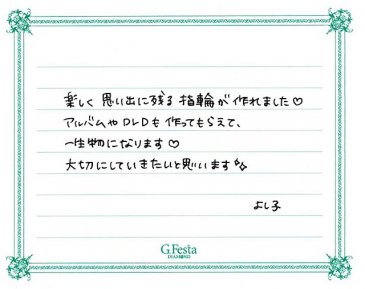 楽しく思い出に残る指輪が作れました♡
アルバムやDVDも作ってもらえて、
一生物になります♡
大切にしていきたいと思います
よし子
G.Festa
DIAMOND